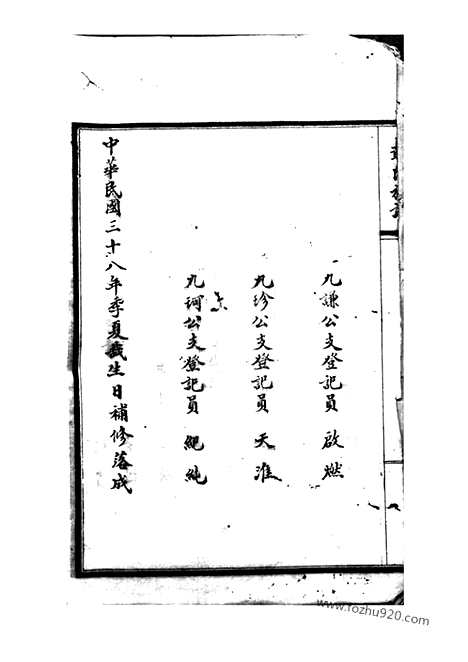 九謙公支登記員 啟燃
九珍公支登記員 天淮
九珂公支登記員 纪純
中華民國三十八年季夏哉生日補修落成
www.fozhu920.com